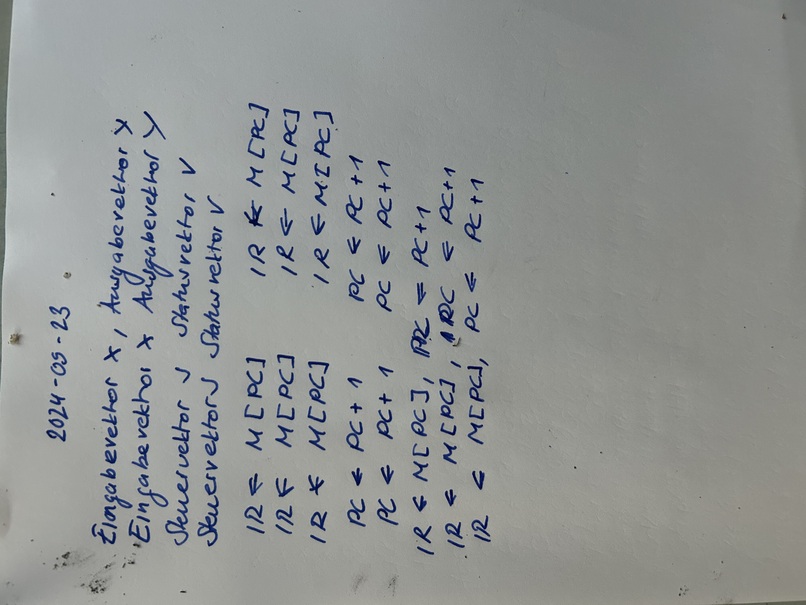 2024-09-23
Eingabevektor X, Ausgabevektor Y
Eingabevektor X Ausgabevektor Y
Steuervektor S Statusvektor V
Steuervektor S Statusvektor V
IR ← M[PC] IR ← M[PC]
IR ← M[PC] IR ← M[PC]
IR ← M[PC] IR ← M[PC]
PC ← PC+1 PC ← PC+1
PC ← PC+1 PC ← PC+1
IR ← M[PC], PC ← PC+1
IR ← M[PC], PC ← PC+1
IR ← M[PC], PC ← PC+1